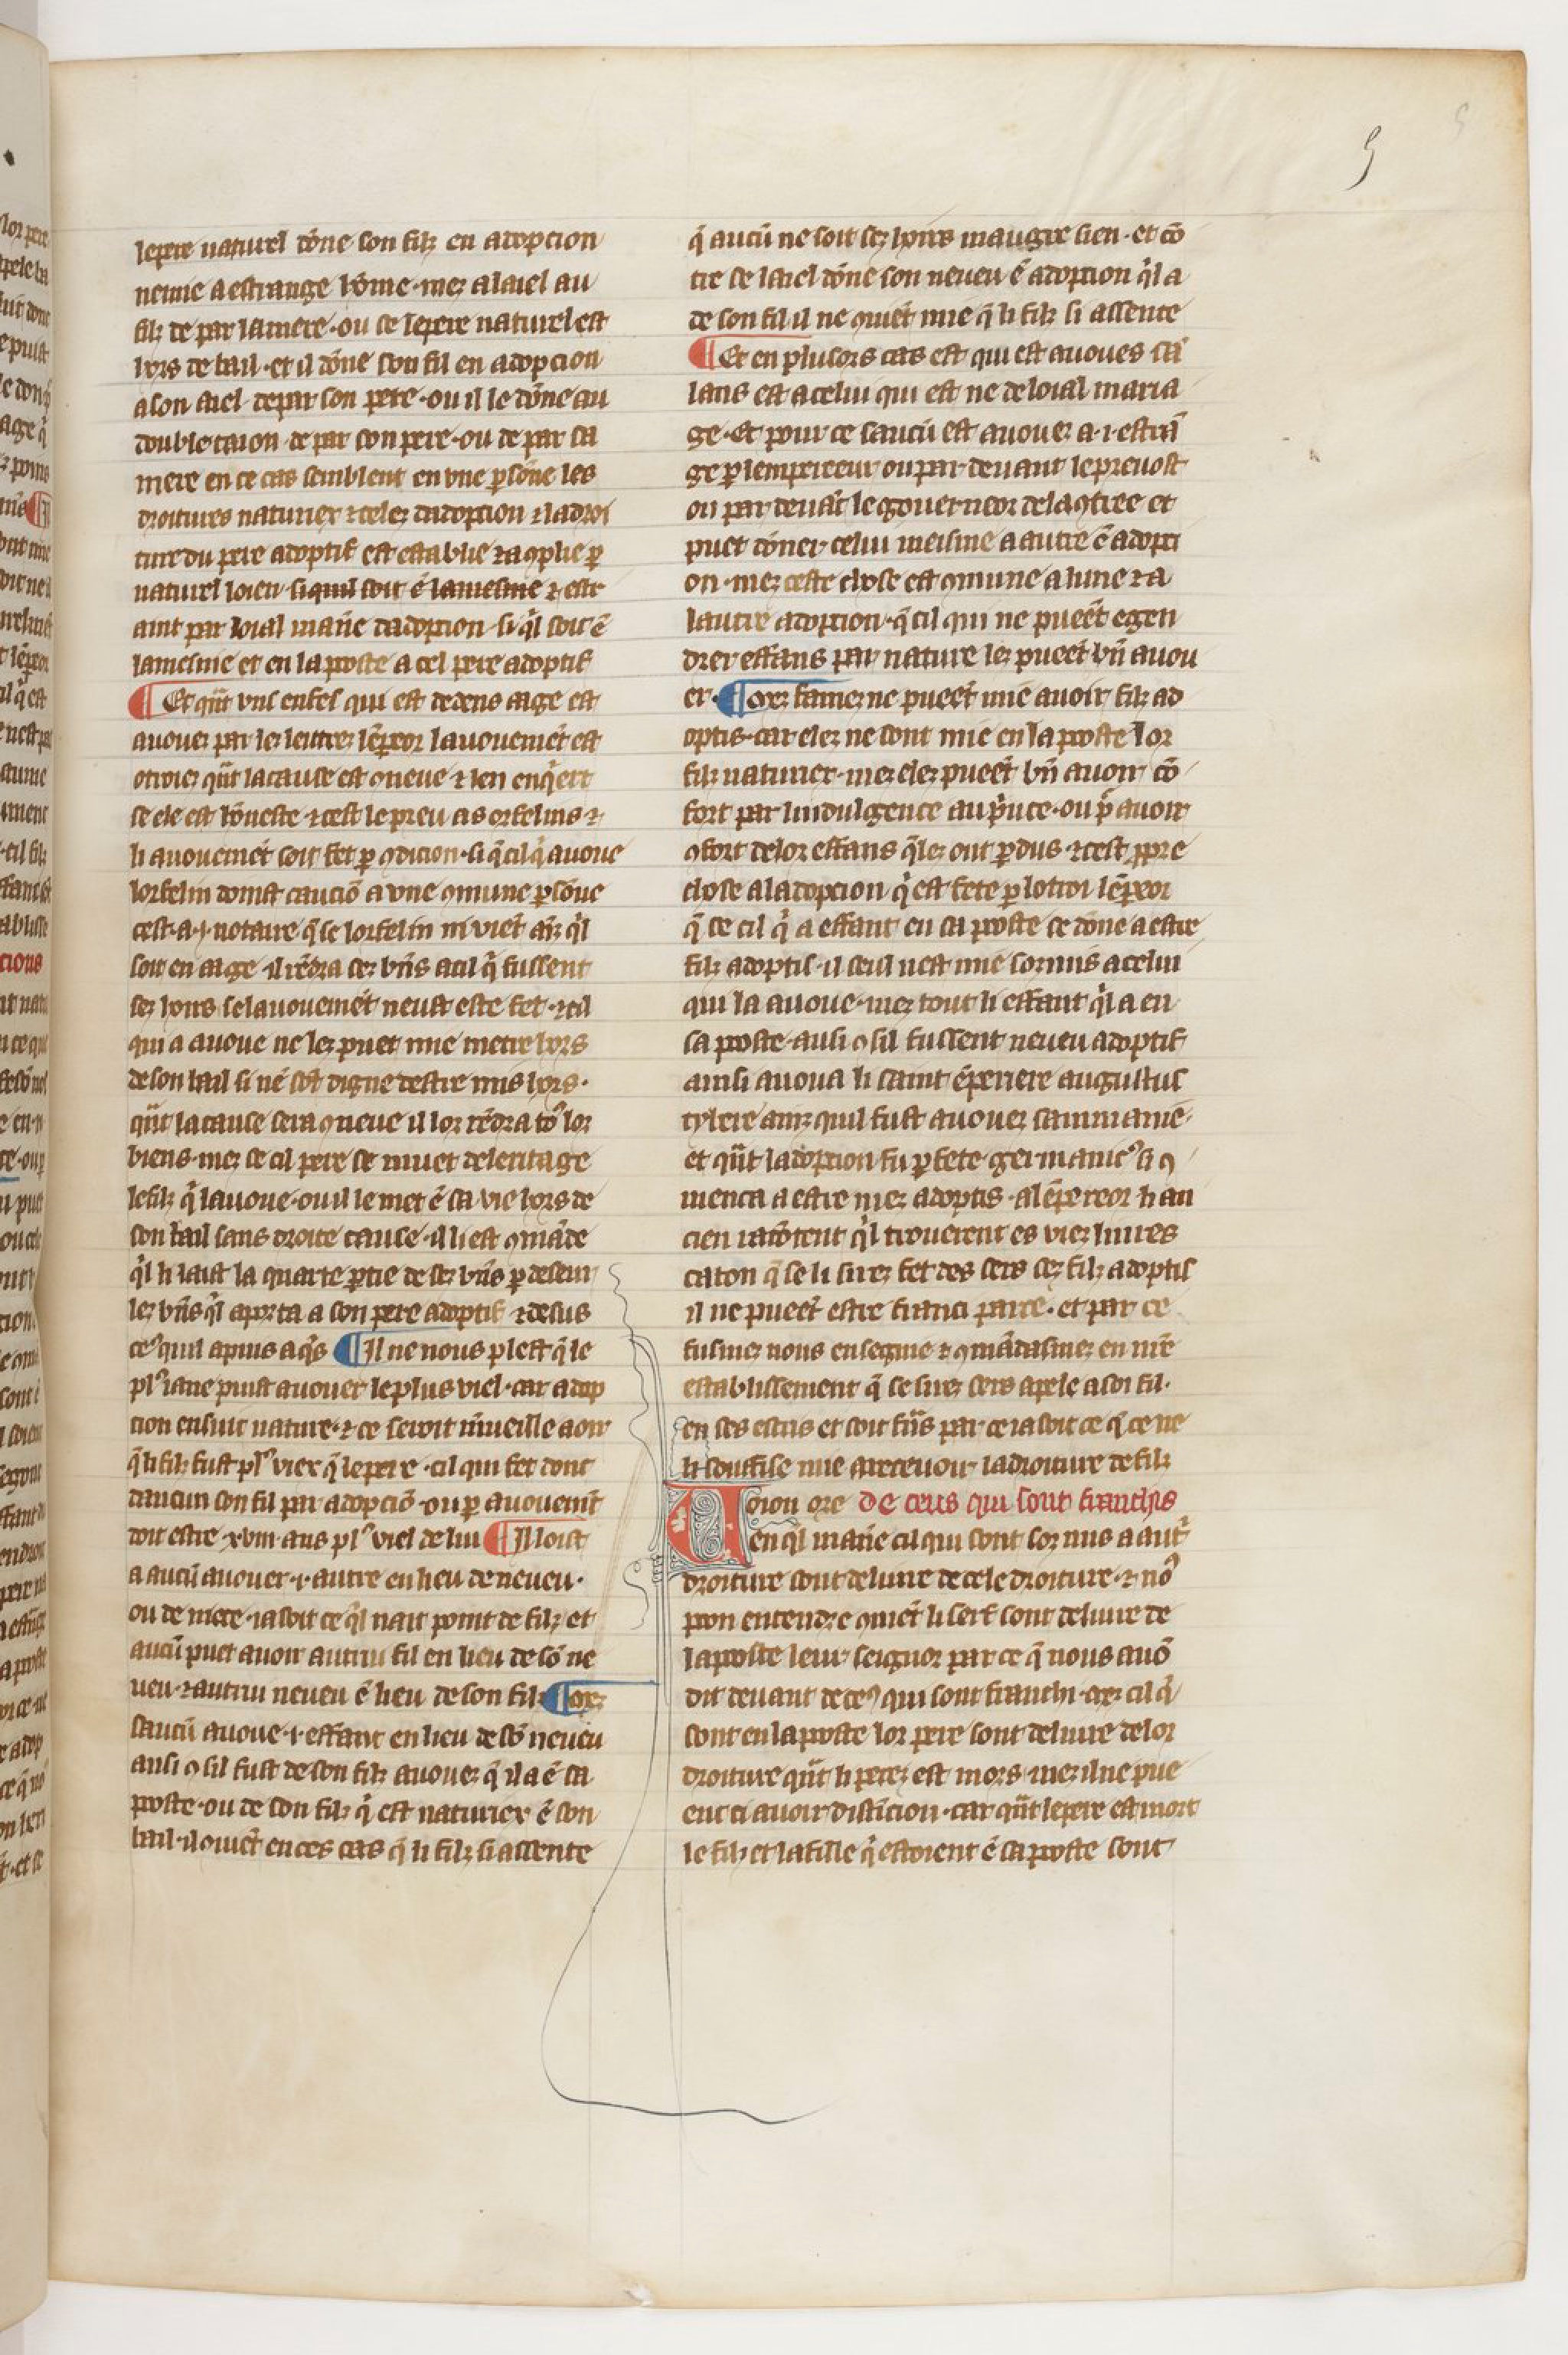 5
lepere naturel dōne son filz en adopcion
nemie a estrange hōme · mez a laiel au
filz de par la mere · ou se lepere naturel est
hors de bail · et il dōne son fil en adopcion
a son aiel depar son pere · ou il le dōne au
double taion de par son pere · ou de par sa
mere en ce cas semblent en vne ꝑsōne les
droitures naturiex ⁊ celez dadopcion ⁊ la droi
ture du pere adoptif est establie ⁊ aꝯplie ꝑ
naturel loien si quil soit ē la mesme ⁊ estr
aint par loial manie dadopcion si q̉l soit ē
la mesnie et en la poste a cel pere adoptif
¶ Et qūt vns enfes qui est dedens aage est
auouez par lez lettrez lēpeor lauouemēt est
otroiez qūt la cause est ꝯneue ⁊ len enq̉ert
se ele est hōneste ⁊ cest le preu as orfelins ⁊
li auouemēt soit fet ꝑ ꝯdicion · si q̄ cil q̉ auoue
lorfelin doinst cauciō a vne ꝯmune ꝑsōne
cest · a · i · notaire q̄ se lorfelin muiet ainz q̉l
soit en aage il rēdra sez bn̄s a cil q̉ fussent
sez hoirs se lauouemēt neust este fet · ⁊ cil
qui a auoue ne lez puet mie metre hors
de son bail si ne sōt digne destre mis hors ·
qūt la cause sera ꝯneue il lor rēdra toꝰ lor
biens · mez se cil pere se muet deleritage
le filz q̉ lauoue · ou il le met ē sa vie hors de
son bail sans droite cause · il li est ꝯmāde
q̉l li laist la quarte ꝑtie de sez bn̄s ꝑ desus
lez bn̄s q̉l aporta a son pere adoptif ⁊ desus
ceꝰ quil apuis aq̉s ¶ Il ne nous plest q̄ le
plꝰ iane puist auouer le plus viel · car adop
tion ensuit nature · ⁊ ce seroit m̄ueille aoir
q̄ li filz fust plꝰ viex q̄ lepere · cil qui fet donc
daucun son fil par adopciō · ou ꝑ auouemt̄
doit estre · xviii · ans plꝰ viel de lui ¶ Il loist
a aucū auouer · i · autre en lieu de neueu ·
ou de niece · ia soit ce q̉l nait point de filz et
aucū puet auoir autrui fil en lieu de sō ne
ueu · ⁊ autrui neueu ē lieu de son fil ¶ orz
saucū auoue · i · effant en lieu de sō neueu
ausi ꝯ sil fust de son filz auouez q̄ il a ē sa
poste · ou de son filz q̉ est naturiex ē son
bail · il ꝯuiēt en ces cas q̄ li filz si assente
q̄ aucū ne soit sez hoirs maugre sien · et cō
tre se laiel dōne son neueu ē adoption q̉l a
de son fil il ne ꝯuiēt mie q̄ li filz si assente
¶ Et en plusors cas est qui est auoues sā
lans est a celui qui est ne de loial maria
ge · Et pour ce saucū est auouez a · i · estrā
ge ꝑ lempereeur ou par deuant le preuost
ou par deuāt le gouerneor de la ꝯtree et
puet dōner celui meisme a autre ē adopti
on · mez ceste chose est ꝯmune a lune ⁊ a
lautre adoption · q̄ cil qui ne pueēt egen
drer effans par nature lez pueēt bn̄ auou
er · ¶ orz famez ne pueēt mie auoir filz ad
optis · car elez ne sont mie en la poste lor
filz naturiex · mez elez pueēt bn̄ auoir cō
fort par lindulgence au p̉nce · ou ꝑ auoir
ꝯfort de lor effans q̄lez ont ꝑdus · ⁊ cest ꝓpre
chose a ladoption q̉ est fete ꝑ lotroi lēpeor
q̄ se cil q̉ a effant en sa poste se dōne a estre
filz adoptis · il seul nest mie sormis a celui
qui la auoue · mez tout li effant q̉l a en
sa poste · ausi ꝯ sil fussent neueu adoptif
ainsi auoua li saint ēperiere augustus
tybere ainz quil fust auouez sanmanie ·
et qūt ladoption fu ꝑfete germanicꝰ si ꝯ
menca a estre niez adoptis · al ēpereor li an
cien racōtent q̉l trouerent es viez liures
caton q̄ se li sirez fet des sers sez filz adoptis
il ne pueēt estre franci par ce · et par ce
fusmez nous ensegnie ⁊ ꝯmādasmez en nr̄e
establissement q̄ se sirez sers apele a soi fil ·
en ses escris et soit fr̄as par ce ia soit ce q̄ ce ne
li souffise mie a recevoir la droiture de filz
Voion ore de ceus qui sont franchis
en q̉l manie cil qui sont sormis a autᷓ
droiture sont deliure de cele droiture · ⁊ noꝰ
poon entendre ꝯmēt li serf sont deliure de
la poste leur seignor par ce q̄ nous auō
dit deuant de ceꝰ qui sont franchi · orz cil q̉
sont en la poste lor pere sont deliure de lor
droiture qūt li perez est mors · mez il ne pue
ent ci auoir distīcion · car qūt lepere est mort
le filz et la fille q̉ estoient ē sa poste sont